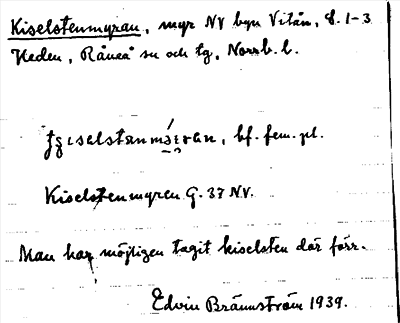 Kiselstenmyran, myr NV byn Vitån, S. 1-3
Heden, Råneå sn och tg, Norrb. l.
bf. fem. pl.
Kiselstenmyren G. 37 NV.
Man har möjligen tagit kiselsten där förr.
Edvin Brännström 1939.